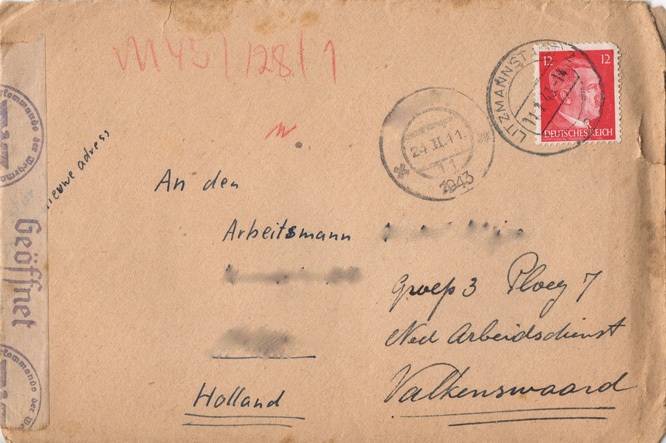 M45/128/1
12 12
DEUTSCHES REICH
LITZMANNSTADT
24.II.11.
11
1943
Kommando der Wehrmacht
nieuwe adress
Geöffnet
An den
Arbeitsmann
Groep 3 Ploeg 7
Ned Arbeidsdienst
Valkenswaard
Holland
Kommando der